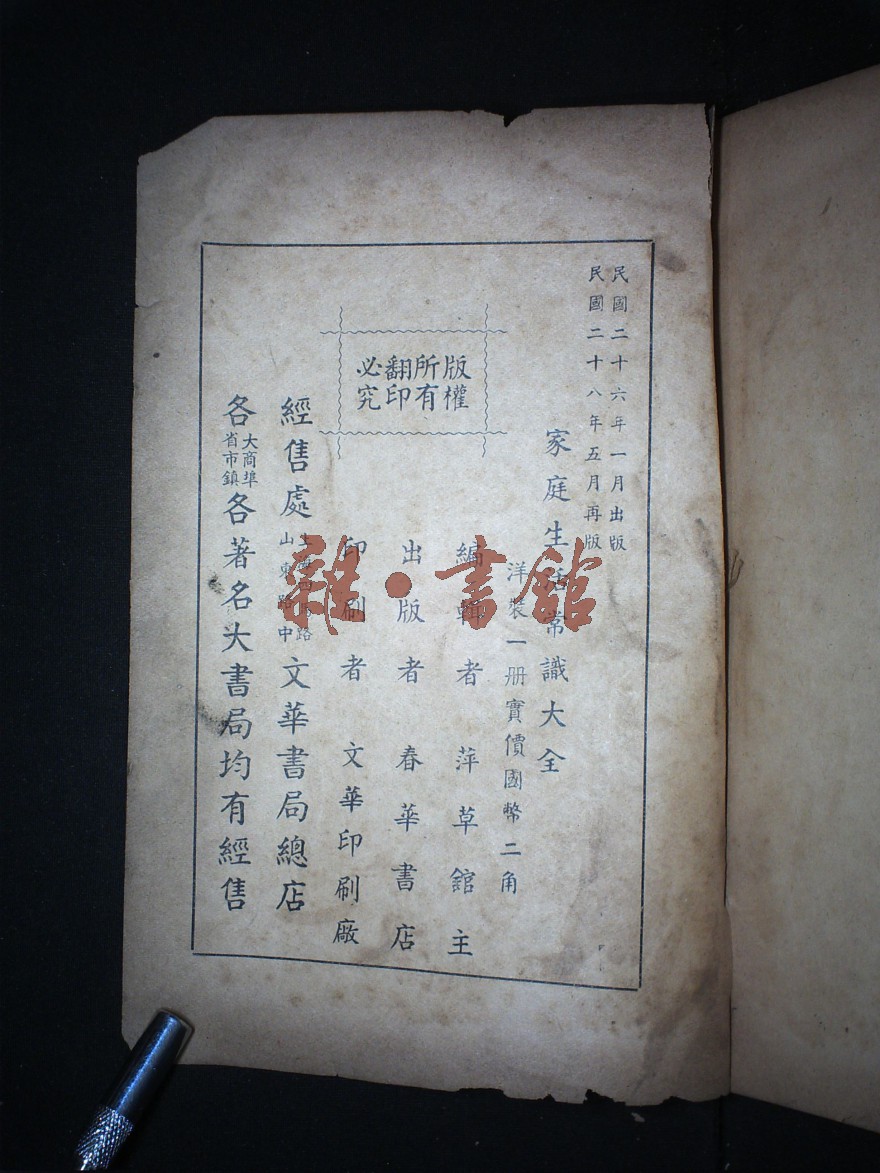 民國二十六年一月出版
民國二十八年五月再版
家庭生活常識大全
洋裝一册實價國幣二角
版權
所有
翻印
必究
編輯者 萍草館主
出版者 春華書店
印刷者 文華印刷廠
經售處 上海四馬路山東路中 文華書局總店
各大商埠省市鎮各著名大書局均有經售
雜·書館